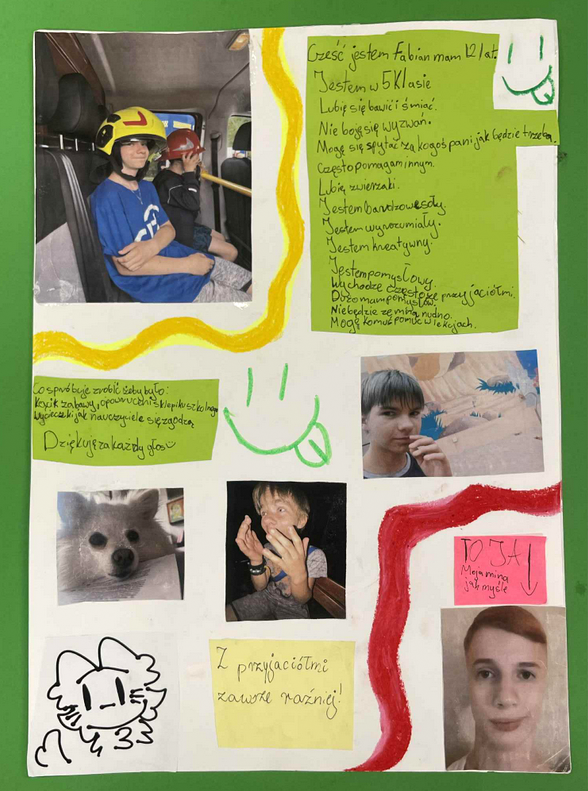 Cześć jestem fabian mam 12 lat.
Jestem w 5 Klasie
Lubię się bawić i śmiać.
Nie boję się wyzwań.
Mogę się spytać za kogoś pani jak będzie trzeba.
Często pomagam innym.
Lubię zwierzaki.
Jestem bardzo wesoły.
Jestem wyrozumiały.
Jestem kreatywny.
Jestem pomysłowy.
Wychodzę często ze przyjaciółmi,
Dużo mam pomysłów.
Nie będzie ze mną nudno.
Mogę komuś pomóc w lekcjach.
Co spróbuję zrobić żeby było:
Kącik zabawy, sklepiku szkolnego
Wycieczki jak nauczyciele się zgodzą
Dziękuję za każdy głos
TO JA
Moja mina
jak myślę
Z przyjaciółmi
zawsze raźniej!